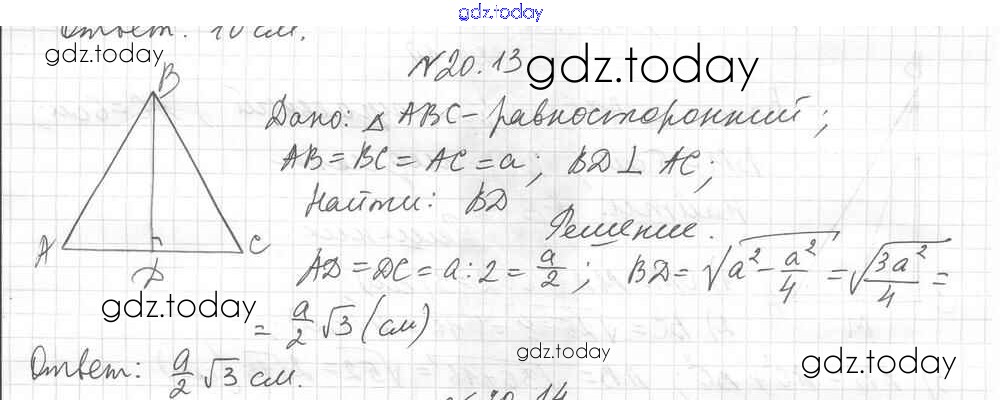 gdz.today
Ответ: 10 см.
gdz.today
№20.13
gdz.today
B
Дано: △ ABC - равносторонний;
AB = BC = AC = a; BD ⊥ AC;
Найти: BD
Решение.
A
C
D
AD = DC = a : 2 = a/2; BD = √(a² - a²/4) = √(3a²/4) =
gdz.today
= a/2 √3 (см)
gdz.today
gdz.today
Ответ: a/2 √3 см.